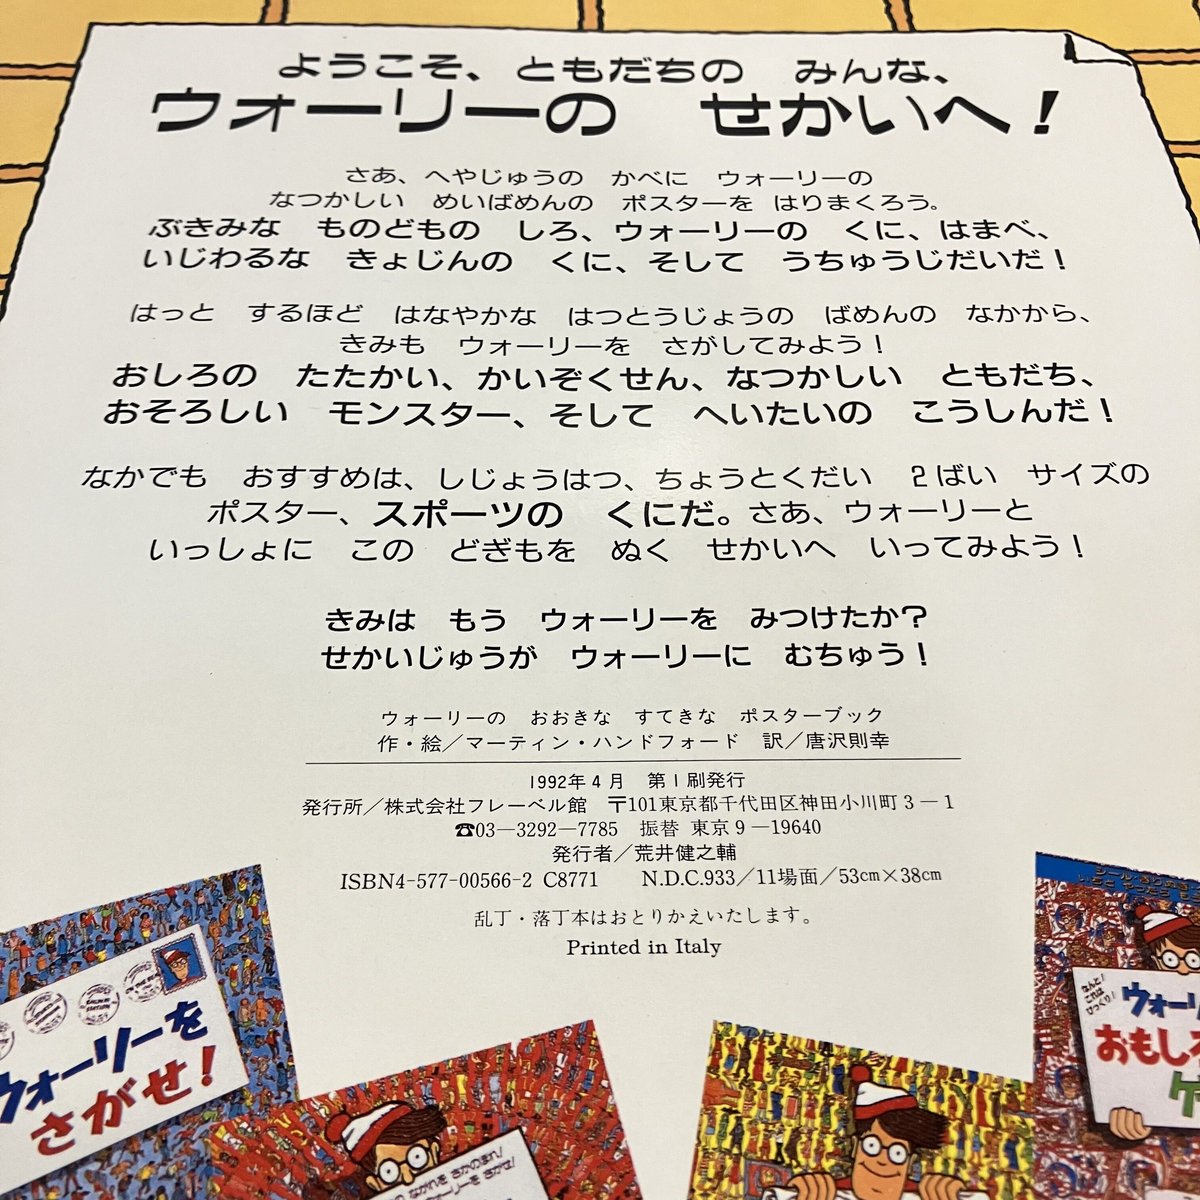 ようこそ、ともだちの　みんな、
ウォーリーの　せかいへ！
さあ、へやじゅうの　かべに　ウォーリーの
なつかしい　めいばめんの　ポスターを　はりまくろう。
ぶきみな　ものどもの　しろ、ウォーリーの　くに、はまべ、
いじわるな　きょじんの　くに、そして　うちゅうじだいだ！
はっと　するほど　はなやかな　はつとうじょうの　ばめんの　なかから、
きみも　ウォーリーを　さがしてみよう！
おしろの　たたかい、かいぞくせん、なつかしい　ともだち、
おそろしい　モンスター、そして　へいたいの　こうしんだ！
なかでも　おすすめは、しじょうはつ、ちょうとくだい　2ばい　サイズの
ポスター、スポーツの　くにだ。さあ、ウォーリーと
いっしょに　この　どぎもを　ぬく　せかいへ　いってみよう！
きみは　もう　ウォーリーを　みつけたか？
せかいじゅうが　ウォーリーに　むちゅう！
ウォーリーの　おおきな　すてきな　ポスターブック
作・絵／マーティン・ハンドフォード　訳／唐沢則幸
1992年4月　第1刷発行
発行所／株式会社フレーベル館　〒101東京都千代田区神田小川町3−1
☎03−3292−7785　振替 東京9−19640
発行者／荒井健之輔
ISBN4-577-00566-2 C8771　N.D.C.933／11場面／53cm×38cm
乱丁・落丁本はおとりかえいたします。
Printed in Italy
ウォーリーを
さがせ！
なんと！
これは
びっくり！
ウォーリ
おもしろ
ゲ